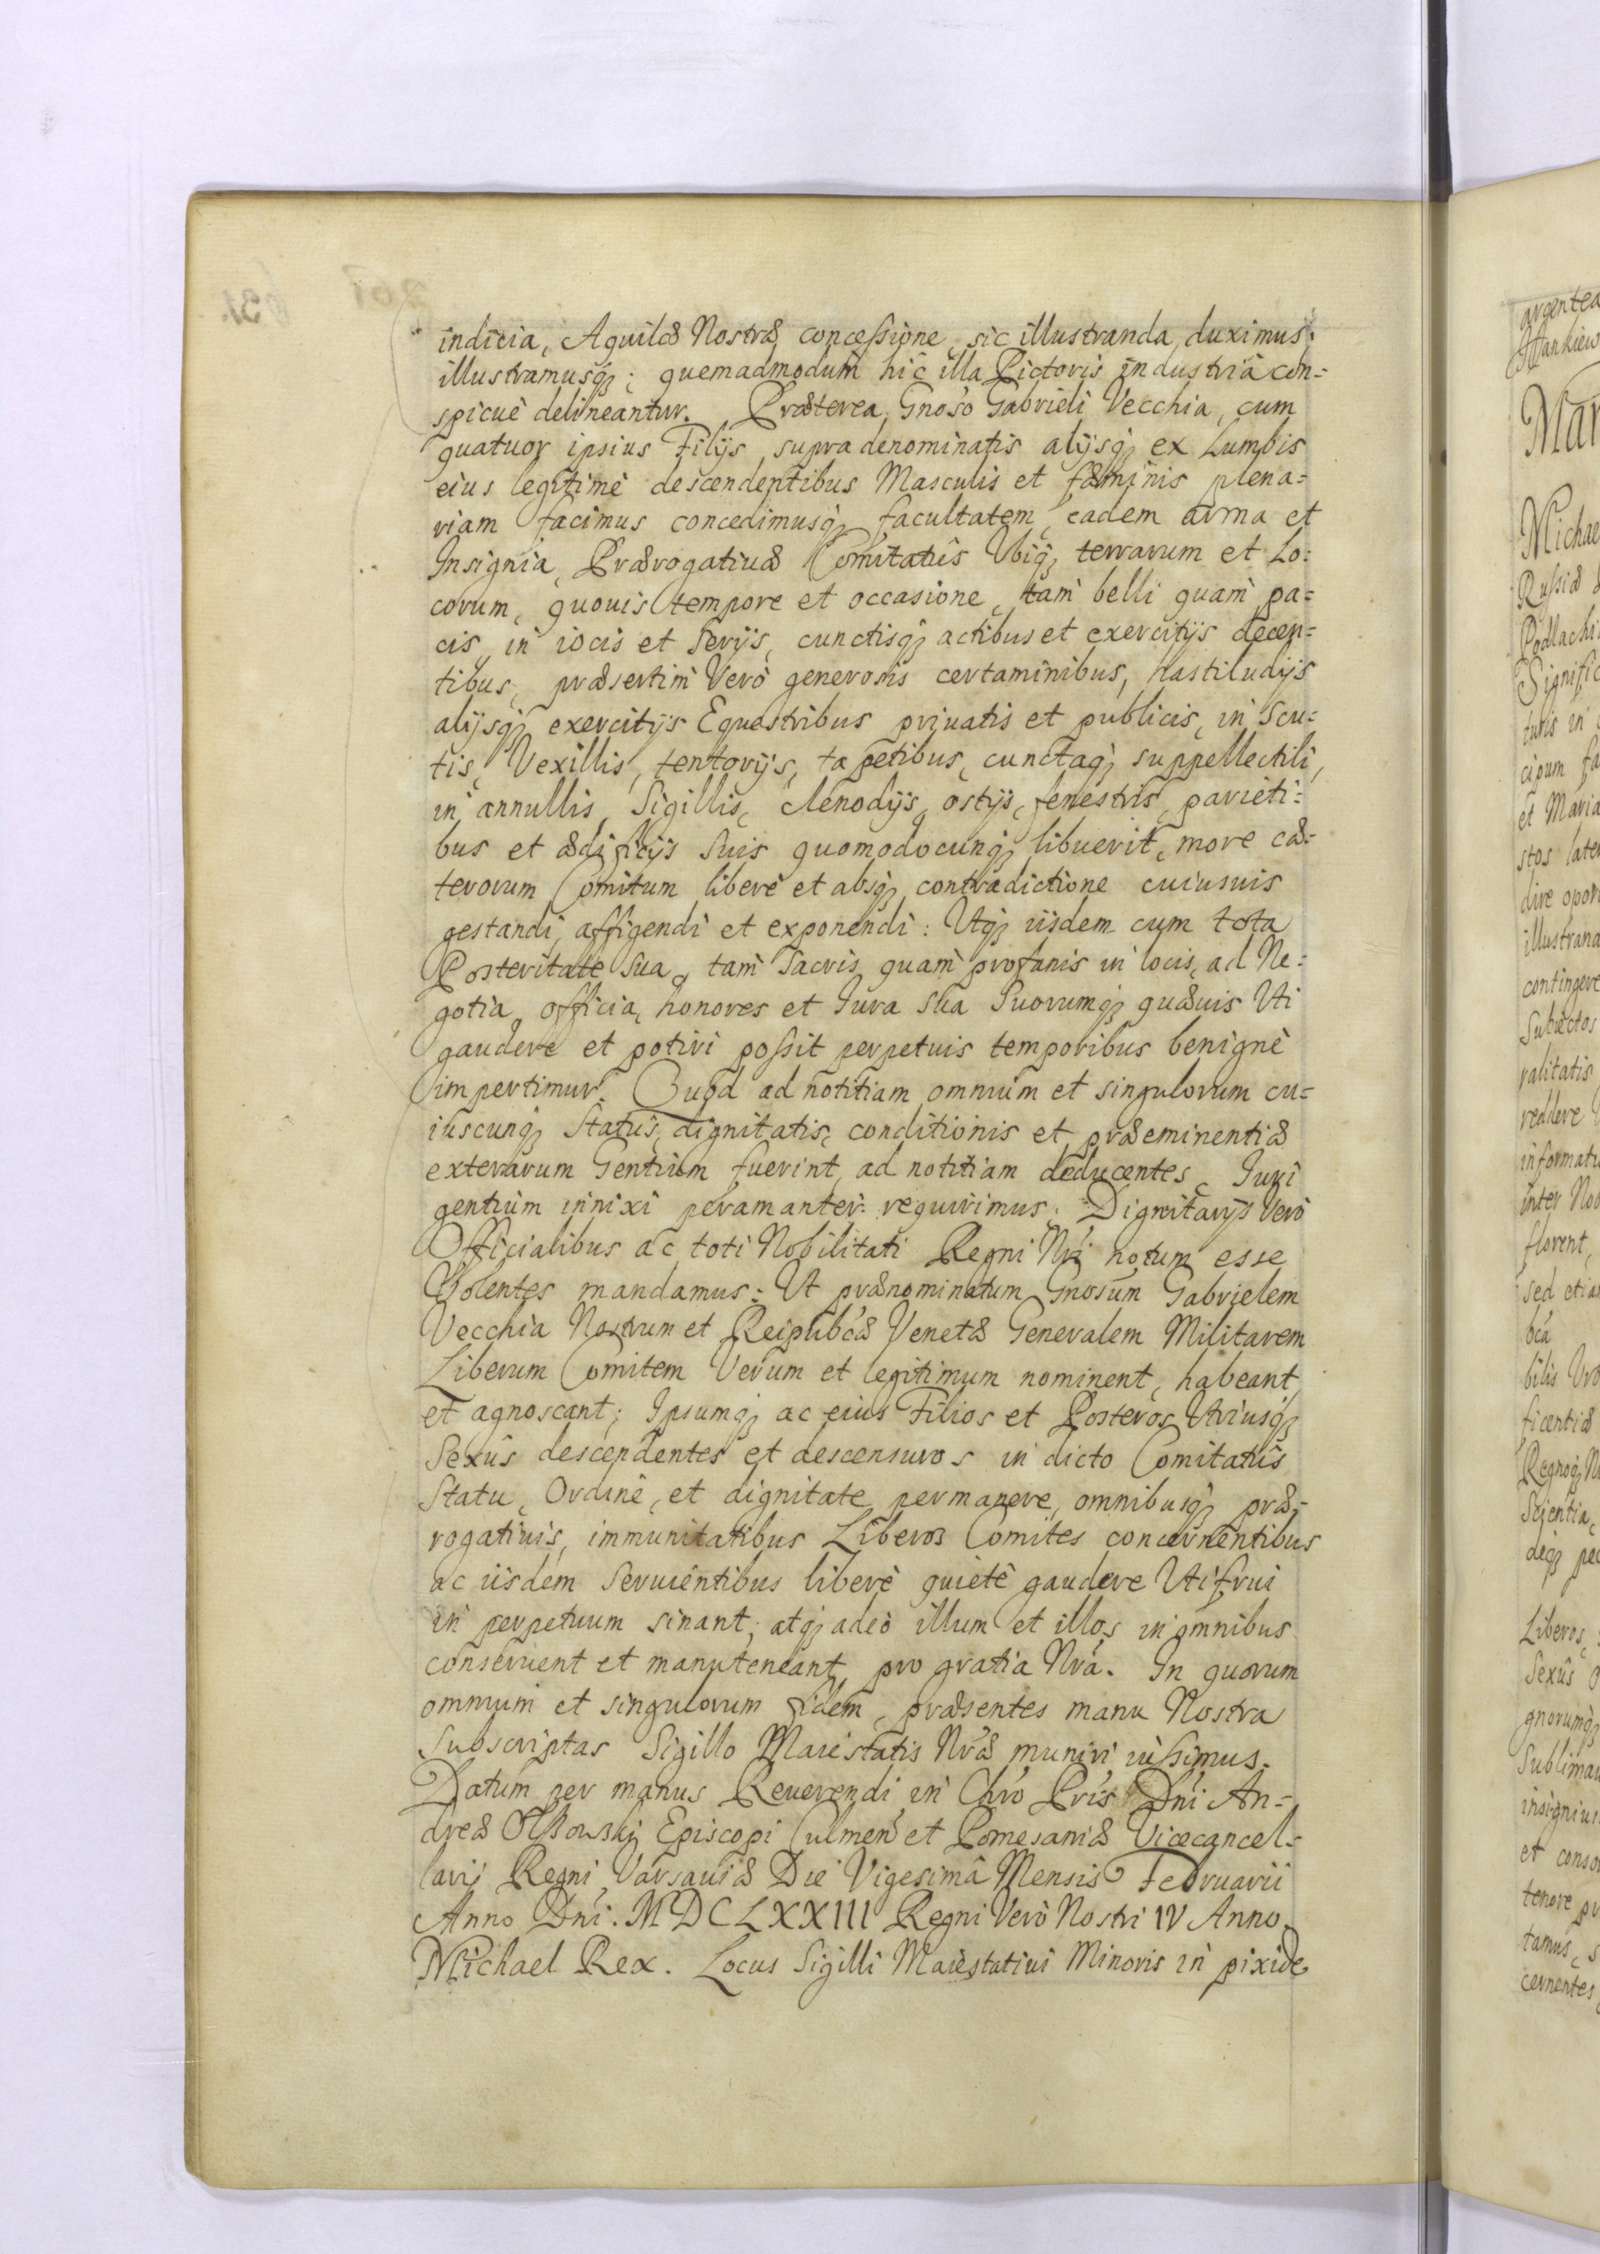 indicia, Aquilæ Nostræ concessione, sic illustranda duximus:
illustramusq; quemadmodum hic illa Pictoris industriâ con=
spicuè delineantur. Præterea Gnoso Gabrieli Vecchia, cum
quatuor ipsius Filijs supra denominatis alijsq; ex Lumbis
eius legitimè descendentibus Masculis et fæminis plena=
riam facimus concedimusq; facultatem, eadem arma et
Insignia, Prærogatiuæ Comitatûs Vbiq; terrarum et Lo=
corum, quouis tempore et occasione, tam belli quam pa=
cis, in iocis et Serijs, cunctisq; actibus et exercitijs decen=
tibus, præsertim Verò generosis certaminibus, hastiludijs
alijsq; exercitijs Equestribus priuatis et publicis, in Scu=
tis, Vexillis, tentorijs, tapetibus, cunctaq; suppellectili,
in annullis, Sigillis, clenodijs, ostijs, fenestris, parieti=
bus et ædificijs Suis quomodocunq; libuerit, more cæ=
terorum Comitum liberè et absq; contradictione cuiusuis
gestandi, affigendi et exponendi: Vtq; iisdem cum tota
Posteritate Sua, tam Sacris quam profanis in locis, ad Ne=
gotia officia, honores et Iura Sua Suorumq; quæuis Vti
gaudere et potiri possit perpetuis temporibus benignè
impertimur. Quod ad notitiam omnium et singulorum cu=
iuscunq; Statûs, dignitatis, conditionis et præeminentiæ
exterarum Gentium fuerint, ad notitiam deducentes, Iuri
gentium innixi peramanter requirimus: Dignitarijs Verò
Officialibus ac toti Nobilitati Regni Nri notum esse
Volentes mandamus: Ut prænominatum Gnosum Gabrielem
Vecchia Nostrum et Reipubcæ Venetæ Generalem Militarem
Liberum Comitem Verum et legitimum nominent, habeant,
et agnoscant; Ipsumq; ac eius Filios et Posteros Vtriusq;
Sexûs descendentes et descensuros in dicto Comitatûs
Statu, Ordine, et dignitate permanere, omnibusq; præ=
rogatiuis, immunitatibus Liberos Comites concernentibus
ac iisdem Seruientibus liberè quietè gaudere Vti frui
in perpetuum sinant, atq; adeò illum et illos in omnibus
conseruent et manuteneant, pro gratia Nrâ. In quorum
omnium et singulorum fidem, præsentes manu Nostra
Subscriptas Sigillo Maiestatis Nræ muniri iussimus.
Datum per manus Reuerendi in Chro Pris Dni An=
dreæ Olszowskj Episcopi Culmen et Pomesaniæ Vicecancel=
larij Regni, Varsauiæ Die Vigesimâ Mensis Februarii
Anno Dni. MDCLXXIII Regni Verò Nostri IV Anno.
Michael Rex. Locus Sigilli Maiestatiui Minoris in pixide